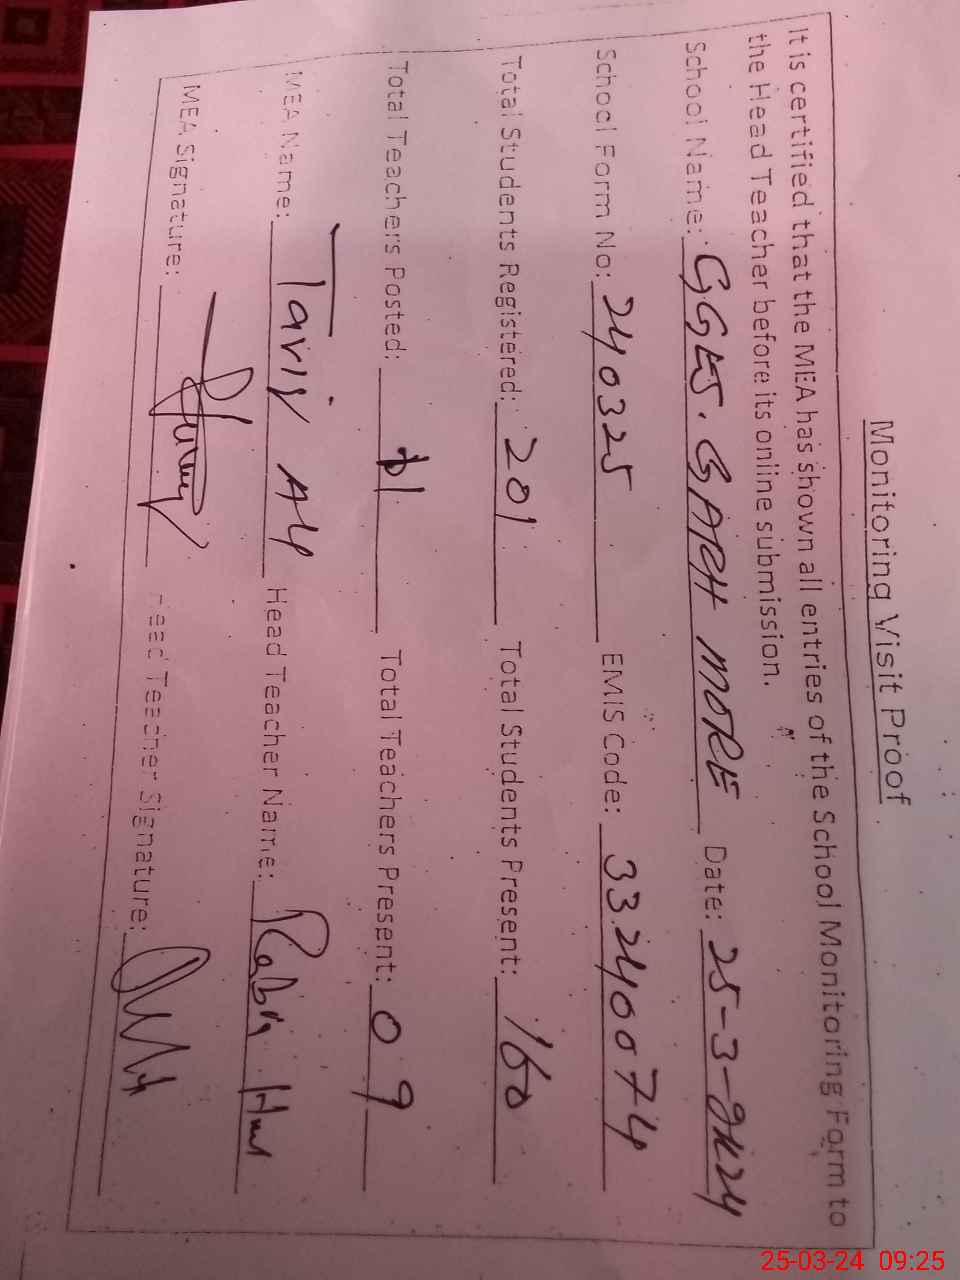 Monitoring Visit Proof
It is certified that the MEA has shown all entries of the School Monitoring Form to
the Head Teacher before its online submission.
School Name: GGES. GARH MORE Date: 25-3-2024
School Form No: 240325 EMIS Code: 33240074
Total Students Registered: 201 Total Students Present: 160
Total Teachers Posted: Total Teachers Present: 09
MEA Name: Tariq Ali Head Teacher Name: Rabia
MEA Signature: Head Teacher Signature:
25-03-24 09:25